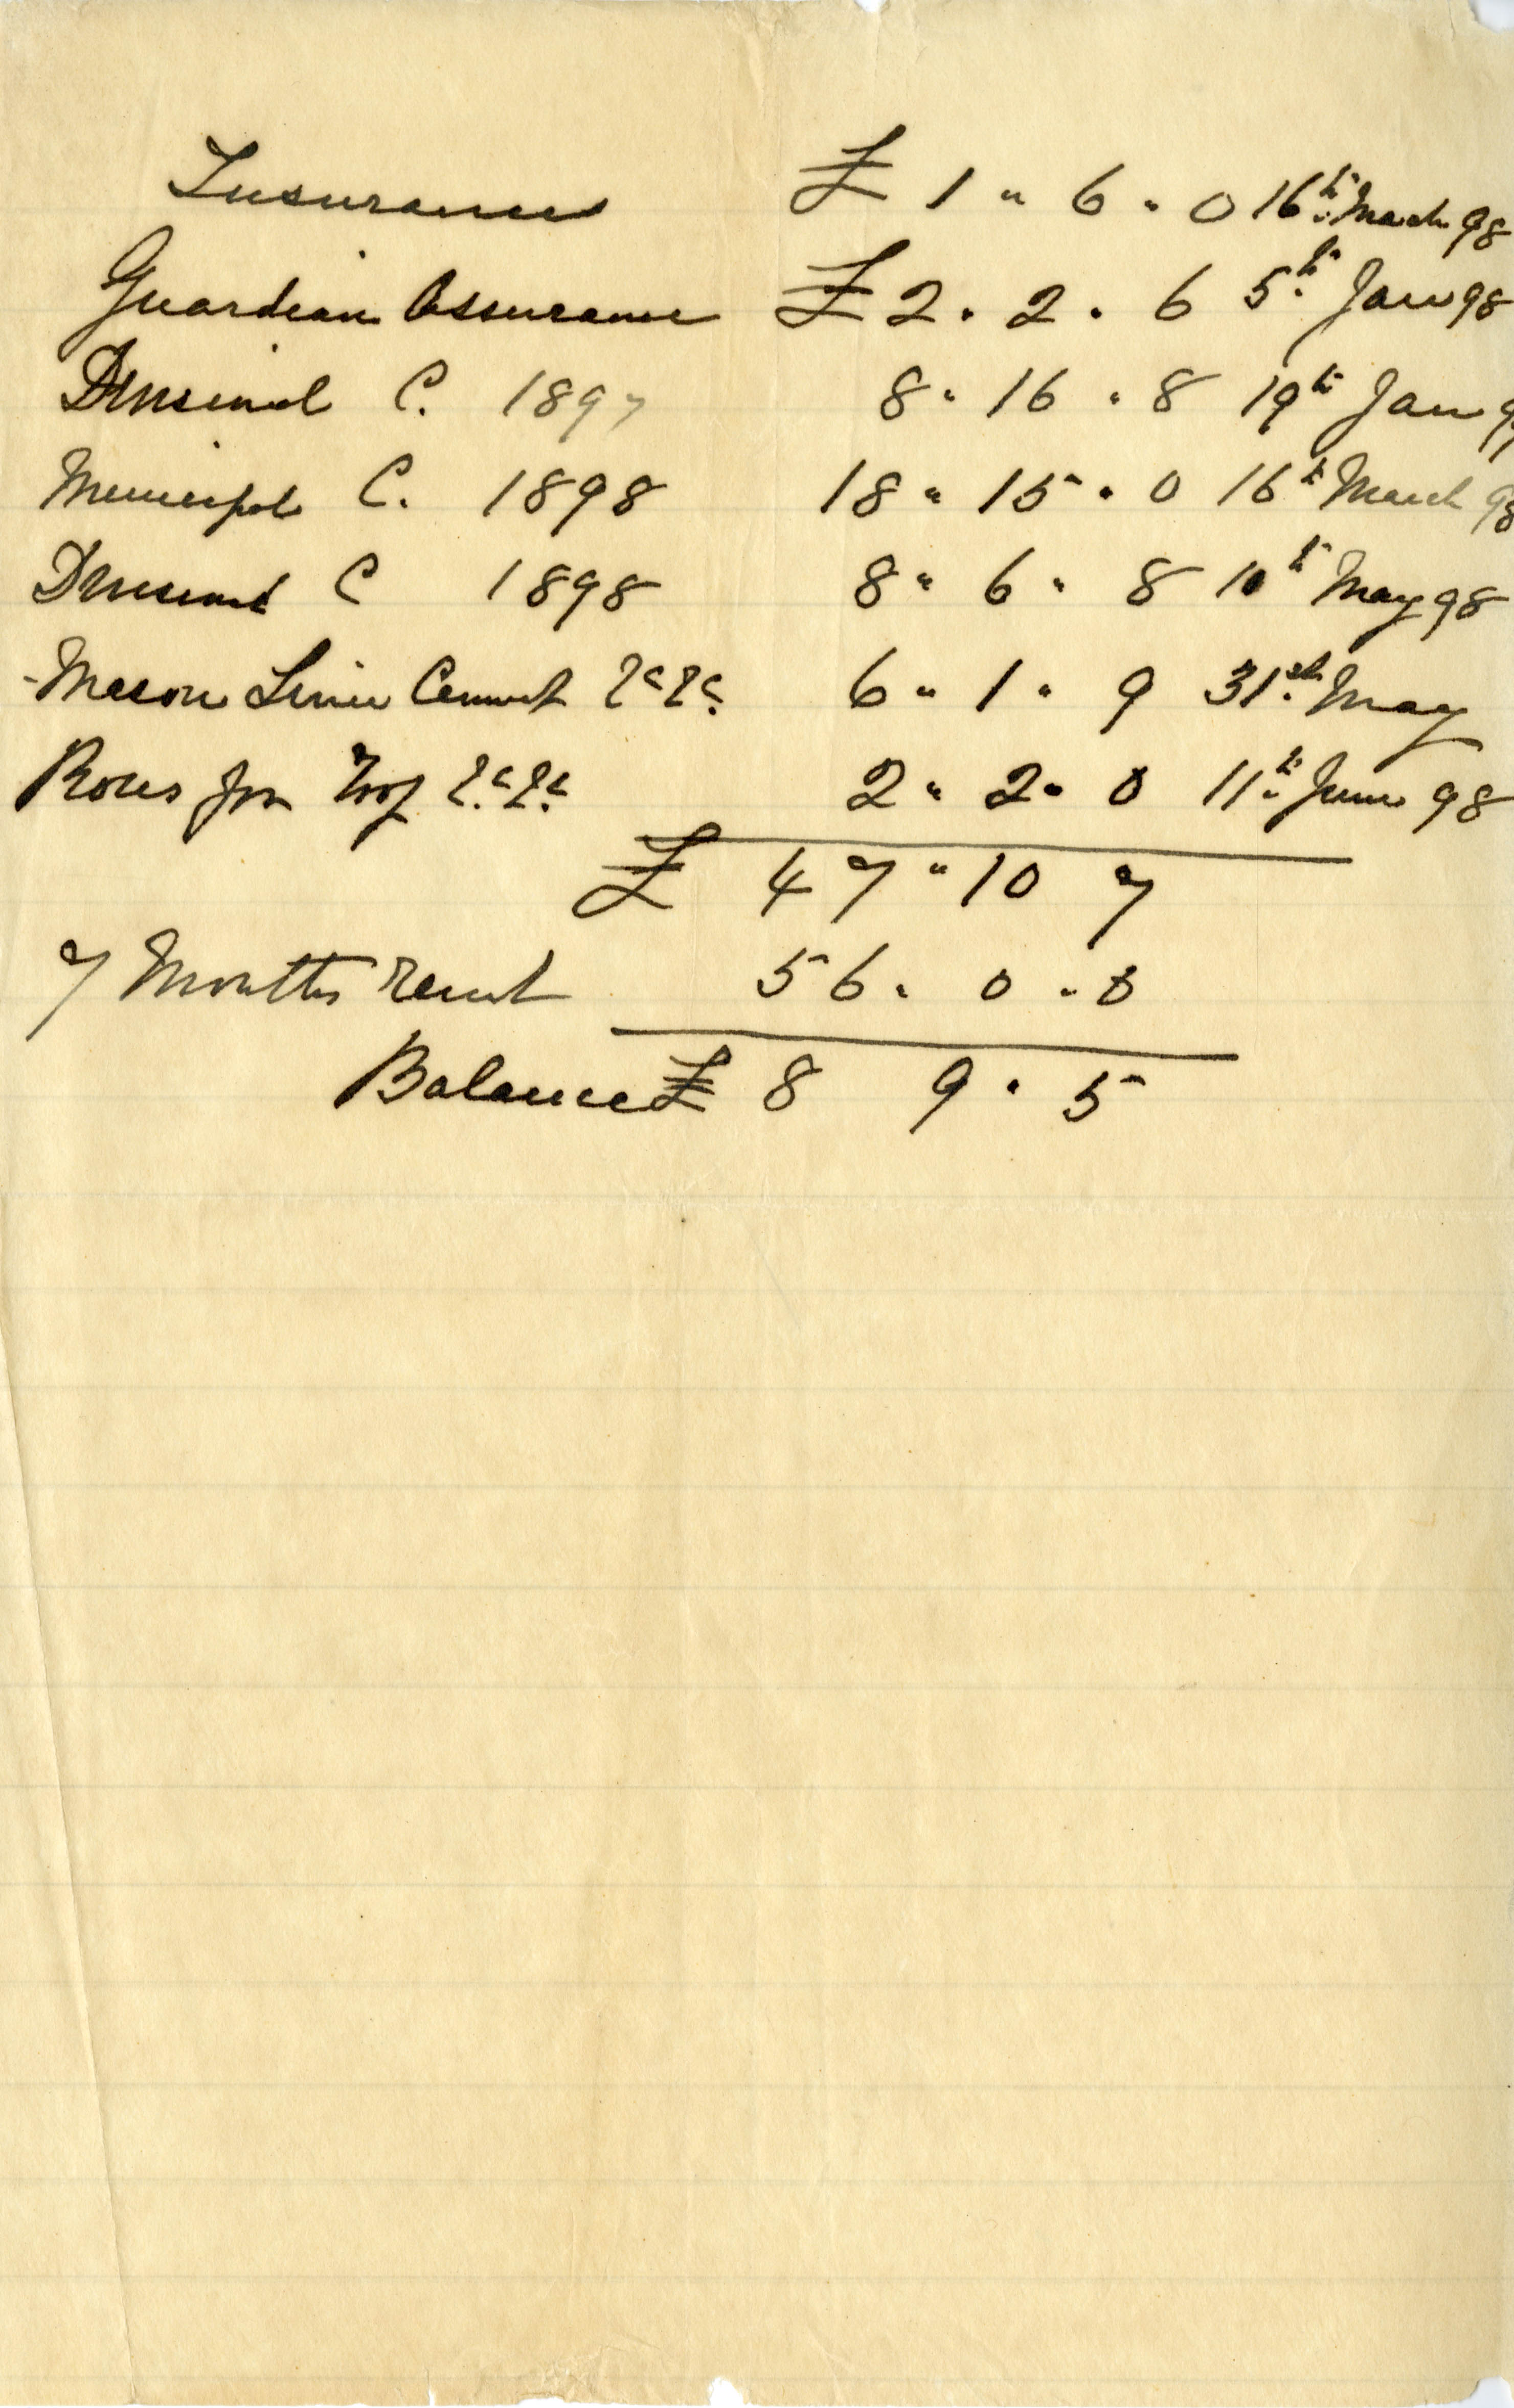 Insurance £ 1 " 6 " 0 16th March 98
Guardian Assurance £ 2 . 2 . 6 5th Jan 98
Divisional C. 1897 8 " 16 " 8 19th Jan 9
Municipal C. 1898 18 " 15 " 0 16th March 98
Divisional C 1898 8 " 6 " 8 10th May 98
Mason Lime Cement &c &c. 6 " 1 " 9 31st May
for Roof &c. &c. 2 " 2 " 0 11th June 98
£ 47 " 10 7
7 Months rent 56 . 0 . 0
Balance £ 8 9 . 5